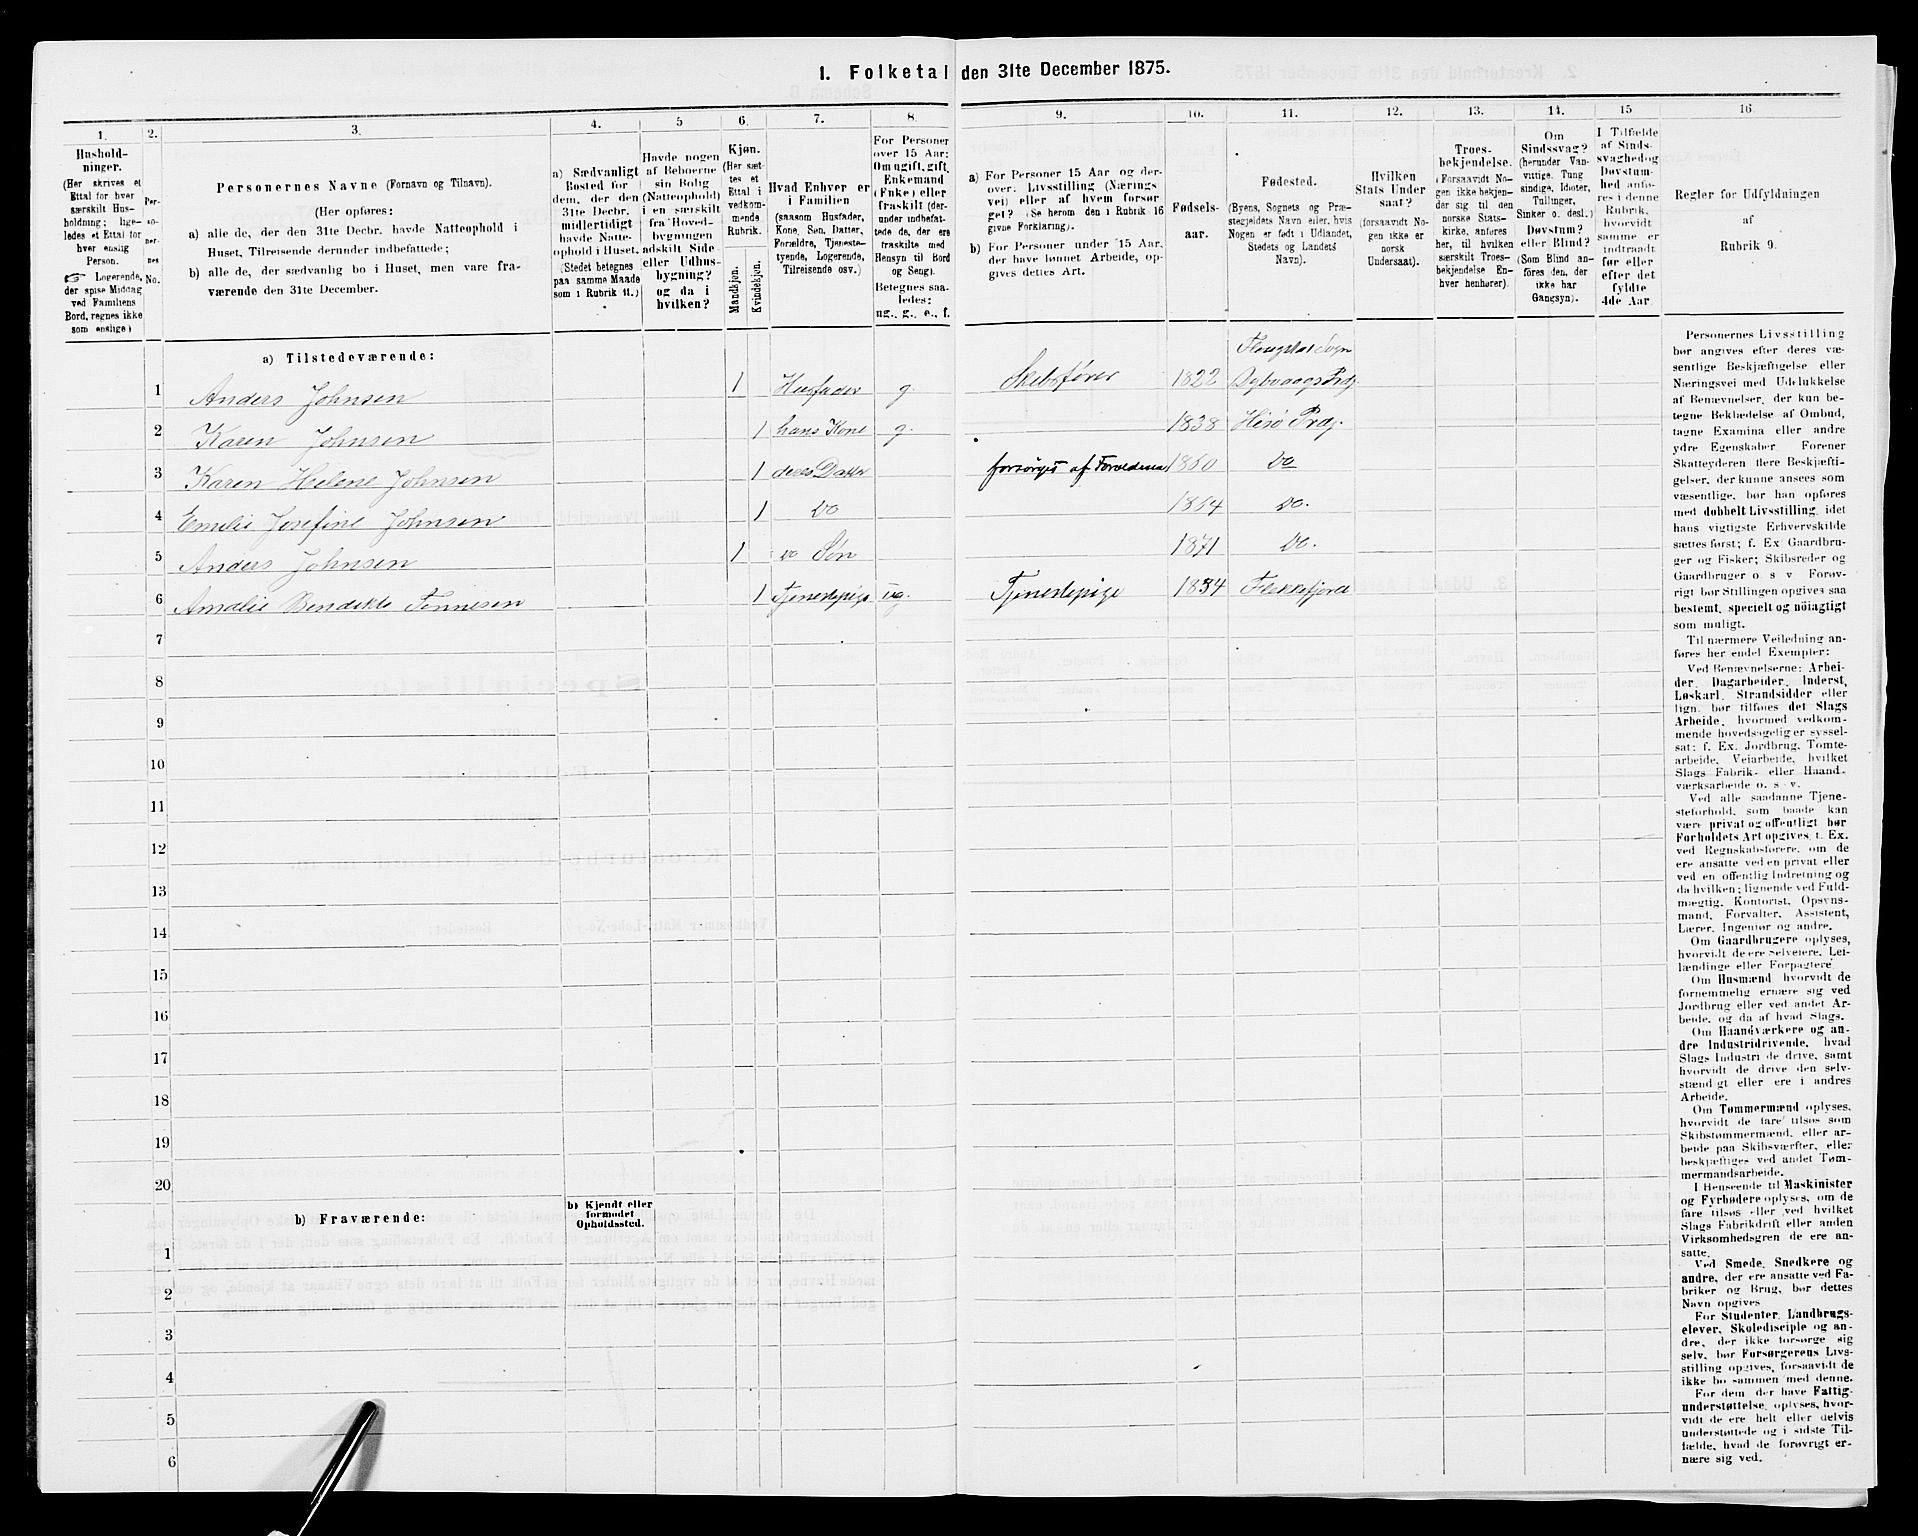 1. Folketal den 31te December 1875.
1. 2. 3. 4. 5 6. 7. 8. 9. 10. 11. 12. 13. 14. 15 16.
Hushold-
ninger.
(Her skrives et
Ettal for hver
særskilt Hus-
holdning; lige-
ledes et Ettal for
hver enslig
Person.
☞ Logerende,
der spise Middag
ved Familiens
Bord, regnes ikke
som enslige)
Per-
so-
ner-
nes
No.
Personernes Navne (Fornavn og Tilnavn).
(Her opføres:
a) alle de, der den 31te Decbr. havde Natteophold i
Huset, Tilreisende derunder indbefattede;
b) alle de, der sædvanlig bo i Huset, men vare fra-
værende den 31te December.
a) Sædvanligt
Bosted for
dem, der den
31te Decbr.
midlertidigt
havde Natte-
ophold i Huset.
(Stedet betegnes
paa samme Maade
som i Rubrik 11.)
Havde nogen
af Beboerne
sin Bolig
(Natteophold)
i en særskilt
fra Hoved-
bygningen
adskilt Side
eller Udhus-
bygning?
og da i
hvilken?
Kjøn.
(Her sæt-
tes et
Ettal i
vedkom-
mende
Rubrik.
Mandkjøn.
Kvindekjøn.
Hvad Enhver er
i Familien
(saasom Husfader,
Kone, Søn, Datter,
Forældre, Tjeneste-
tyende, Logerende,
Tilreisende osv.)
For Personer
over 15 Aar:
Om ugift, gift,
Enkemand
(Enke) eller
fraskilt (der-
under indbefat-
tede de, der ere
fraskilte med
Hensyn til Bord
og Seng).
Betegnes saa-
ledes:
ug., g., e., f.
a) For Personer 15 Aar og der-
over: Livsstilling (Nærings-
vei) eller af hvem forsør-
get? (Se herom den i Rubrik 16
givne Forklaring).
b) For Personer under 15 Aar,
der have lønnet Arbeide, op-
gives dettes Art.
Fødsels-
aar.
Fødested.
(Byens, Sognets og Præ-
stegjeldets Navn eller, hvis
Nogen er født i Udlandet,
Stedets og Landets
Navn).
Hvilken
Stats Under
saat?
(forsaavidt No-
gen ikke er
norsk
Undersaat).
Troes-
bekjendelse.
(Forsaavidt No-
gen ikke bekjen-
der sig til den
norske Stats-
kirke, anføres
her, til hvilken
særskilt Troes-
bekjendelse En-
hver henhører).
Om
Sindssvag?
(herunder Van-
vittige, Tung
sindige, Idioter,
Tullinger,
Sinker o. desl.)
Døvstum?
eller Blind?
(Som Blind an-
føres den, der
ikke har
Gangsyn).
I Tilfælde
af Sinds-
svaghed og
Døvstum-
hed anfø-
res i denne
Rubrik,
hvorvidt
samme er
indtraadt
før eller
efter det
fyldte
4de Aar.
Regler for Udfyldningen
af
Rubrik 9.
a) Tilstedeværende:
Flougstad Sogn
1 Anders Johnsen 1 Husfader g. Skibsfører 1822 Dybvaags Prdg.
2 Karen Johnsen 1 hans Kone g. 1838 Hisø Prdg.
3 Karen Helene Johnsen 1 deres Datter forsørges af Forældrene 1860 Do
4 Emilie Josefine Johnsen 1 Do 1864 Do.
5 Anders Johnsen 1 Do Søn 1871 Do.
6 Amalie Bendikte Tønnesen 1 Tjenestepige ug. Tjenestepige 1854 Flekkefjord
7
8
9
10
11
12
13
14
15
16
17
18
19
20
b) Fraværende:
b) Kjendt eller
formodet
Opholdssted.
1
2
3
4
5
6
Personernes Livsstilling
bør angives efter deres væ-
sentlige Beskjæftigelse eller
Næringsvei med Udelukkelse
af Benævnelser, der kun be-
tegne Beklædelse af Ombud,
tagne Examina eller andre
ydre Egenskaber Forener
Skatteyderen flere Beskjæfti-
gelser, der kunne ansees som
væsentlige, bør han opføres
med dobbelt Livsstilling, idet
hans vigtigste Erhvervskilde
sættes først; f. Ex Gaardbru-
ger og Fisker; Skibsreder og
Gaardbruger o. s v Forøv-
rigt bør Stillingen opgives saa
bestemt, specielt og nøiagtigt
som muligt.
Til nærmere Veiledning an-
føres her endel Exempler:
Ved Benævnelserne: Arbei-
der, Dagarbeider, Inderst,
Løskarl, Strandsidder eller
lign. bør tilføies det Slags
Arbeide, hvormed vedkom-
mende hovedsagelig er syssel-
sat; f. Ex. Jordbrug, Tomte-
arbeide, Veiarbeide, hvilket
Slags Fabrik- eller Haand-
værksarbeide o. s. v.
Ved alle saadanne Tjene-
steforhold, som baade kan
være privat og offentligt bør
Forholdets Art opgives, t. Ex.
ved Regnskabsførere, om de
ere ansatte ved en privat eller
ved en offentlig Indretning og
da hvilken; lignende ved Fuld-
mægtig, Kontorist, Opsyns-
mand, Forvalter, Assistent,
Lærer, Ingeniør og andre.
Om Gaardbrugere oplyses,
hvorvidt de ere Selveiere, Lei-
lændinge eller Forpagtere
Om Husmænd hvorvidt de
fornemmelig ernære sig ved
Jordbrug eller ved andet Ar-
beide, og da af hvad Slags.
Om Haandværkere og an-
dre Industridrivende, hvad
Slags Industri de drive, samt
hvorvidt de drive den selv-
stændigt eller ere i andres
Arbeide.
Om Tømmermænd oplyses,
hvorvidt de fare tilsøs som
Skibstømmermænd, eller ar-
beide paa Skibsværfter, eller
beskjæftiges ved andet Tøm-
mermandsarbeide.
I Henseende til Maskinister
og Fyrbødere oplyses, om de
fare tilsøs eller ved hvilket
Slags Fabrikdrift eller anden
Virksomhedsgren de ere an-
satte.
Ved Smede, Snedkere og
andre, der ere ansatte ved Fa-
briker og Brug, bør dettes
Navn opgives
For Studenter, Landbrugs-
elever, Skoledisciple og an-
dre, der ikke forsørge sig
selv, bør Forsørgerens Livs-
stilling opgives, forsaavidt de
ikke bo sammen med denne.
For dem, der have Fattig-
understøttelse, oplyses, hvor-
vidt de ere helt eller delvis
understøttede og i sidste Til-
fælde, hvad de forøvrigt er-
nære sig ved.